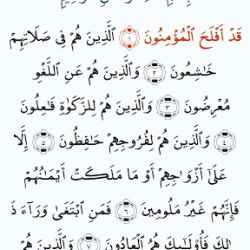 قَدْ أَفْلَحَ الْمُؤْمِنُونَ ١ الَّذِينَ هُمْ فِى صَلَاتِهِمْ
خَاشِعُونَ ٢ وَالَّذِينَ هُمْ عَنِ اللَّغْوِ
مُعْرِضُونَ ٣ وَالَّذِينَ هُمْ لِلزَّكَوٰةِ فَاعِلُونَ
٤ وَالَّذِينَ هُمْ لِفُرُوجِهِمْ حَافِظُونَ ٥ إِلَّا
عَلَىٰ أَزْوَاجِهِمْ أَوْ مَا مَلَكَتْ أَيْمَانُهُمْ
فَإِنَّهُمْ غَيْرُ مَلُومِينَ ٦ فَمَنِ ابْتَغَىٰ وَرَآءَ ذَ
ٰلِكَ فَأُو۟لَـٰٓئِكَ هُمُ الْعَادُونَ ٧ وَالَّذِينَ هُمْ